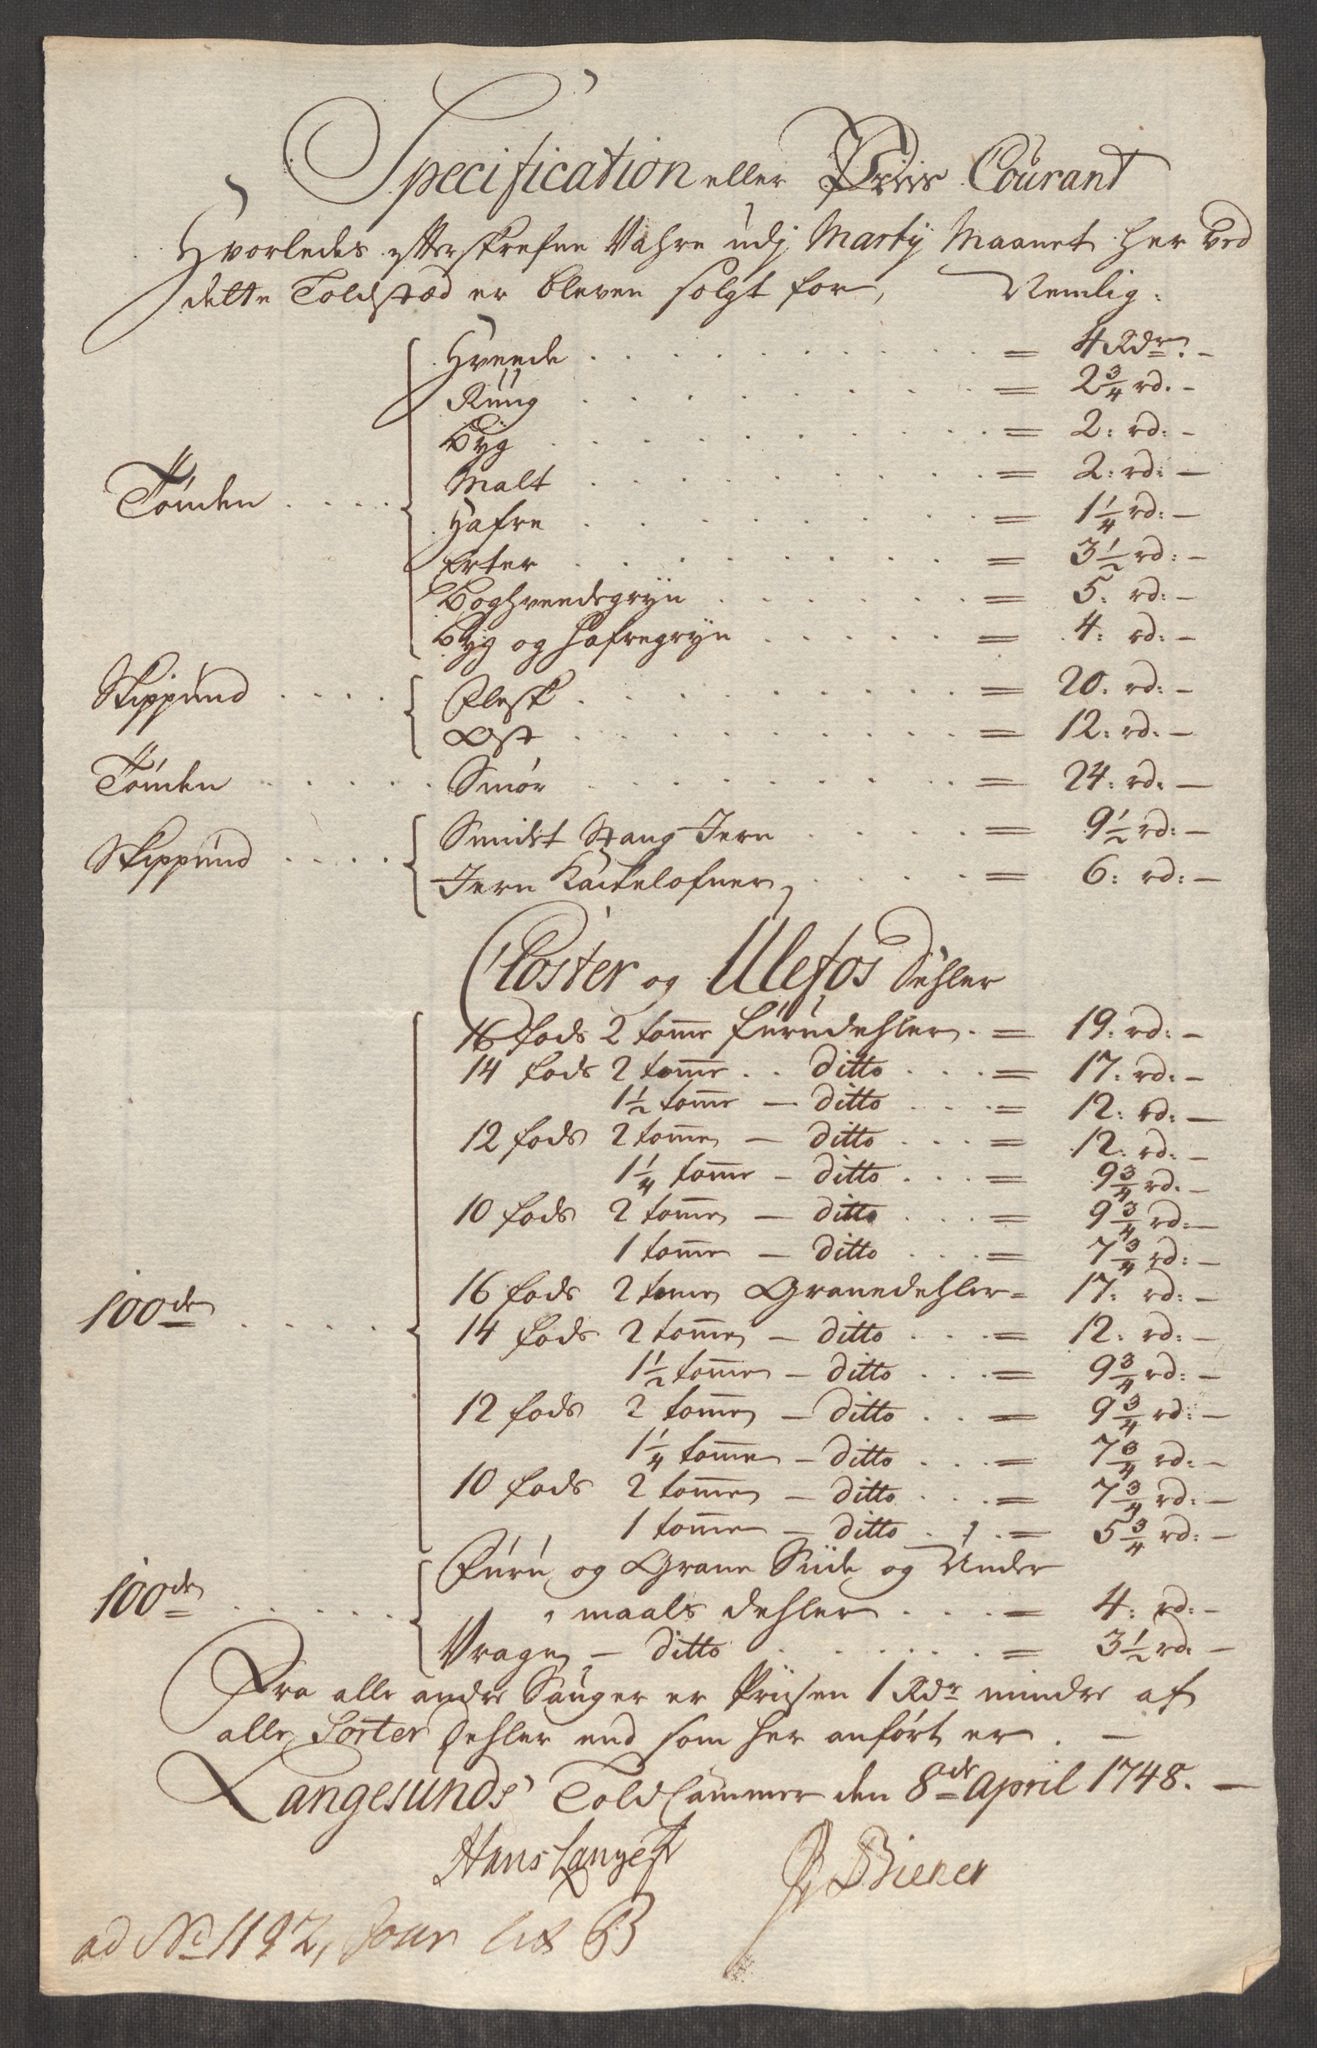 Specification eller Priis Courant
Hvorledes efterskrefne Vahre udj Marty Maanet her ved
dette Toldstæd er bleven solgt for, Nemlig:
Tønden . . . . Hvede . . . = 4 Rdr. –
Rüug . . . = 2 3/4 rd. –
Byg . . . = 2: rd: –
Malt . . . = 2: rd: –
Hafre . . . = 1 1/4 rd: –
Erter . . . = 3 1/2 rd: –
Boghveedegryn . . . = 5. rd: –
Byg og Hafregryn . . . = 4: rd: –
Skippund . . . . Flesk . . . = 20. rd: –
Ost . . . = 12: rd: –
Tønden . . . . Smør . . . = 24: rd: –
Skippund . . . . Smidet Stang Jern . . . = 9 1/2 rd: –
Jern Kackelofner . . . = 6: rd: –
Closter og Ulefos Dehler
16 fods 2 tomme furudehler . = 19. rd: –
14 fods 2 tomme . . ditto . . . = 17: rd: –
1 1/2 tomme – ditto . . . = 12: rd: –
12 fods 2 tomme – ditto . . . = 12: rd: –
1 1/4 tomme – ditto . . . = 9 3/4 rd. –
10 fods 2 tomme – ditto . . . = 9 3/4 rd: –
1 tomme – ditto . . . = 7 3/4 rd: –
16 fods 2 tomme Granedehler = 17: rd: –
100de . . . . 14 fods 2 tomme – ditto . . . = 12: rd: –
1 1/2 tomme – ditto . . . = 9 3/4 rd: –
12 fods 2 tomme – ditto . . . = 9 3/4 rd: –
1 1/4 tomme – ditto . . . = 7 3/4 rd: –
10 fods 2 tomme – ditto . . . = 7 3/4 rd: –
1 tomme – ditto . . . = 5 3/4 rd: –
Furu og Grane Siide og Under
100de . . . . maals dehler . . . = 4: rd: –
Vragn – ditto . . . = 3 1/2 rd: –
Fra alle andre Sauger er Priisen 1 Rdr mindre af
alle Sorter Dehler end som her anført er. –
Langesunds Told Cammer den 8de April 1748. –
Hans Lange B Biener
ad No 1192, Jour Lit B